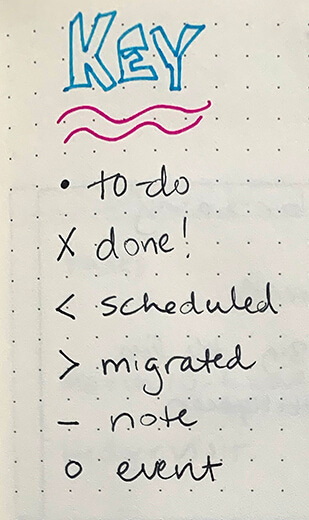 KEY
• to-do
X done!
< scheduled
> migrated
– note
o event